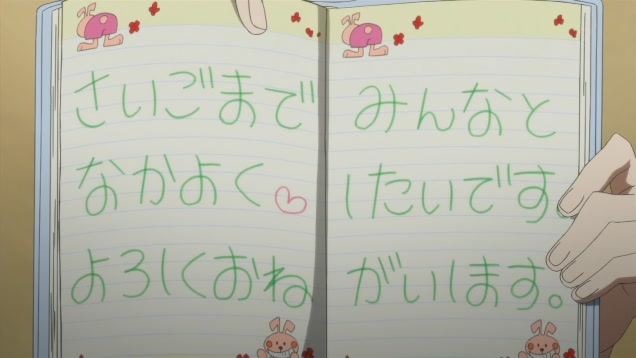 さいごまで みんなと
なかよく♡ したいです。
よろしくおね がいします。